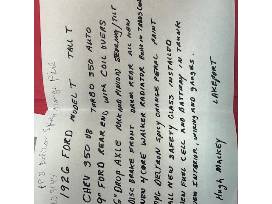 1926 FORD MODEL T TALL T
CHEV 350 V8 TURBO 350 AUTO
9" FORD REAR END WITH COIL OVERS
5" DROP AXLE RACK AND PINION STEERING/TILT
DISC BRAKE FRONT DRUM REAR ALL NEW
NEW 4 CORE WALKER RADIATOR
PPG DELTRON SPICY ORANGE PEARL PAINT
ALL NEW SAFETY GLASS INSTALLED
NEW FUEL CELL AND BATTERY IN TRUNK
NEW INTERIOR, WIRING AND GAUGES.
Hugh Mackey LAKEPORT